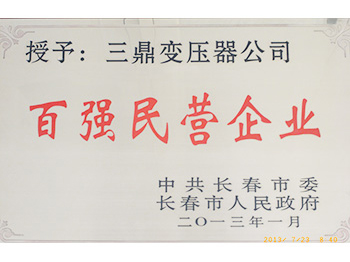 授予：三鼎变压器公司
百强民营企业
中共长春市委
长春市人民政府
二〇一三年一月